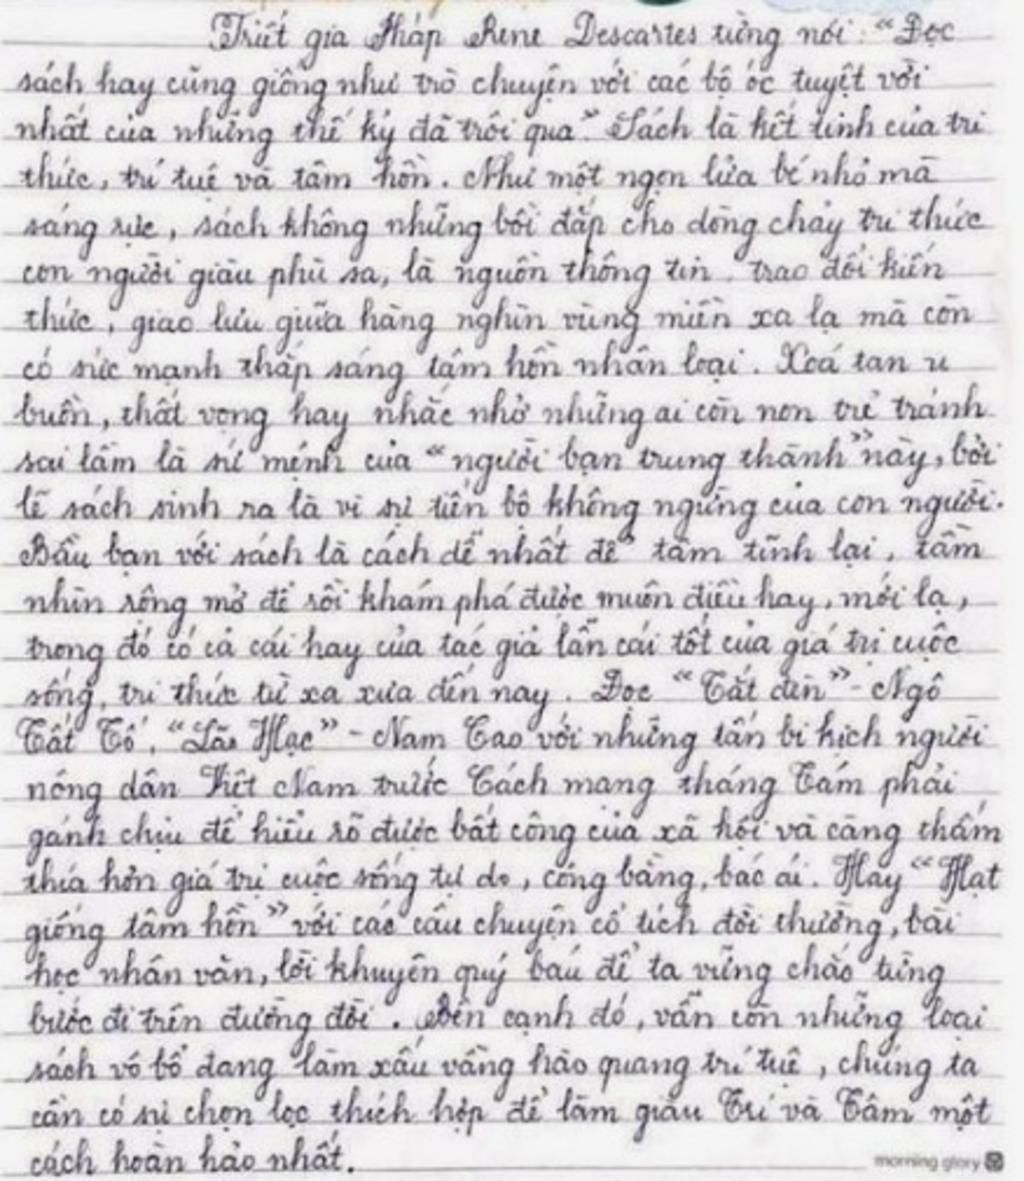 Triết gia Pháp Rene Descartes từng nói: "Đọc
sách hay cũng giống như trò chuyện với các bộ óc tuyệt vời
nhất của những thế kỷ đã trôi qua". Sách là kết tinh của tri
thức, trí tuệ và tâm hồn. Như một ngọn lửa bé nhỏ mà
sáng rực, sách không những bồi đắp cho dòng chảy tri thức
con người giàu phù sa, là nguồn thông tin, trao đổi kiến
thức, giao lưu giữa hàng nghìn vùng miền xa lạ mà còn
có sức mạnh thắp sáng tâm hồn nhân loại. Xoá tan u
buồn, thất vọng hay nhắc nhở những ai còn non trẻ tránh
sai lầm là sứ mệnh của "người bạn trung thành" này, bởi
lẽ sách sinh ra là vì sự tiến bộ không ngừng của con người.
Bầu bạn với sách là cách dễ nhất để tâm tĩnh lại, tầm
nhìn rộng mở để rồi khám phá được muôn điều hay, mới lạ,
trong đó có cả cái hay của tác giả lẫn cái tốt của giá trị cuộc
sống, tri thức từ xa xưa đến nay. Đọc "Tắt đèn" - Ngô
Tất Tố, "Lão Hạc" - Nam Cao với những tấn bi kịch người
nông dân Việt Nam trước Cách mạng tháng Tám phải
gánh chịu để hiểu rõ được bất công của xã hội và càng thấm
thía hơn giá trị cuộc sống tự do, công bằng, bác ái. Hay "Hạt
giống tâm hồn" với các câu chuyện cổ tích đời thường, bài
học nhân văn, lời khuyên quý báu để ta vững chắc từng
bước đi trên đường đời. Bên cạnh đó, vẫn còn những loại
sách vô bổ đang làm xấu vầng hào quang trí tuệ, chúng ta
cần có sự chọn lọc thích hợp để làm giàu Trí và Tâm một
cách hoàn hảo nhất.
morning glory